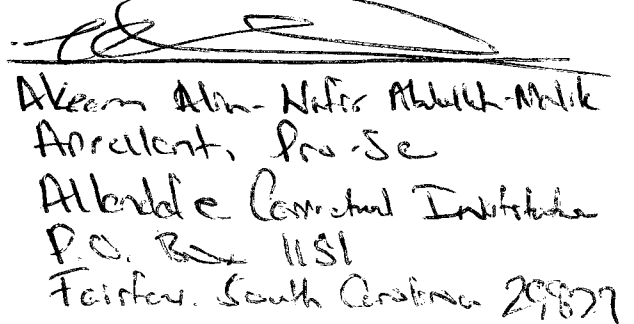 Akeem Alim-Nafis Abdullah-Malik
Appellant, Pro-Se
Allendale Correctional Institution
P.O. Box 1151
Fairfax, South Carolina 29827